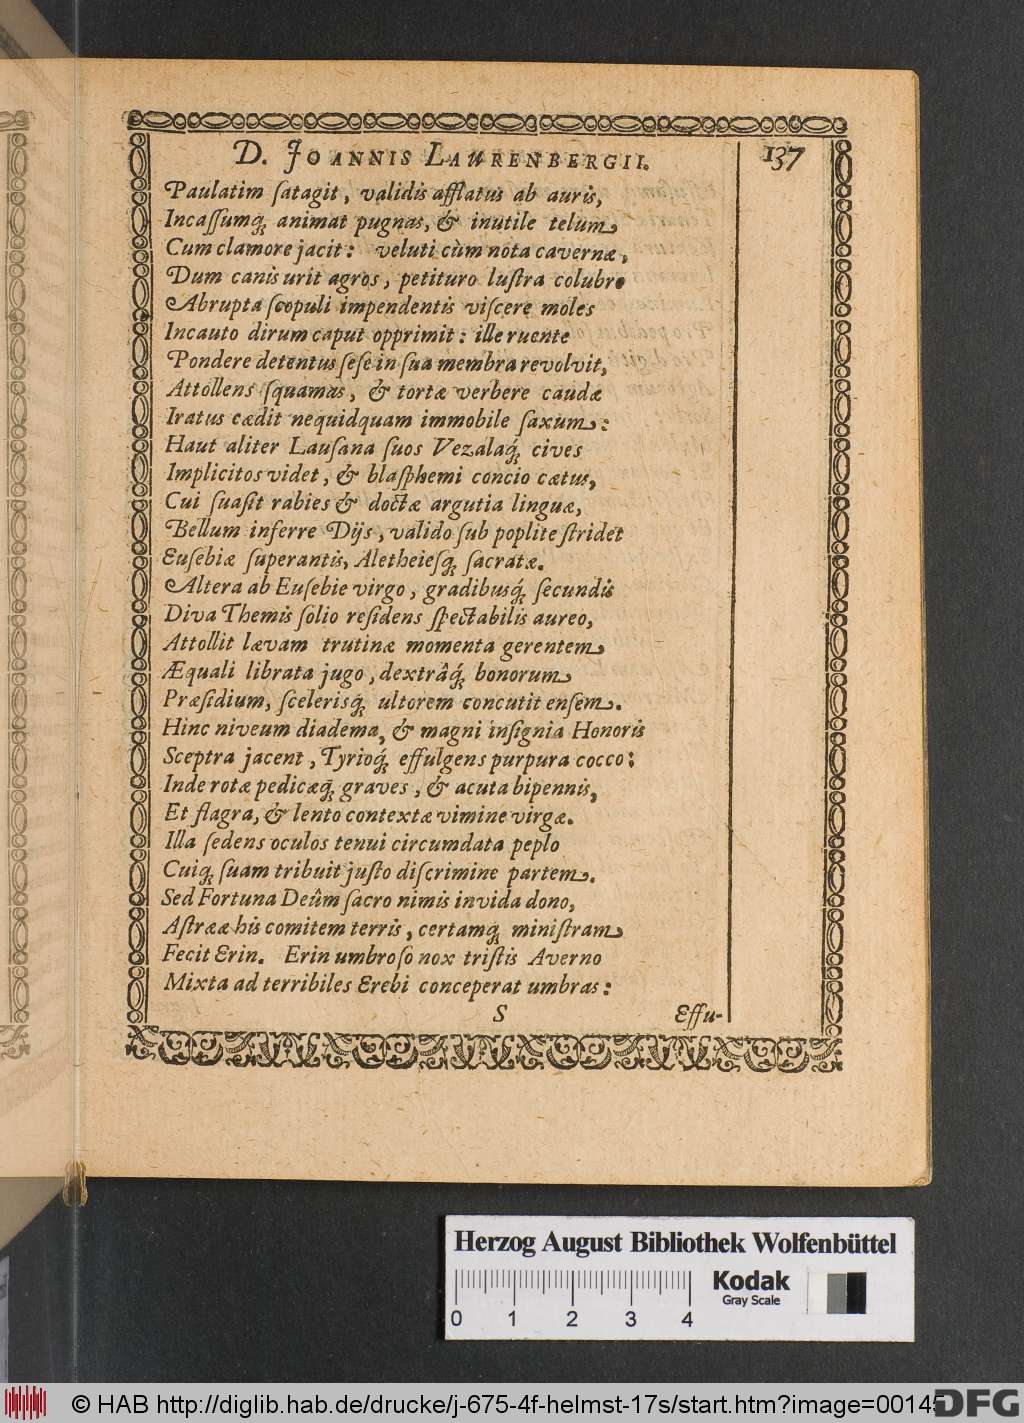 D. JOANNIS LAURENBERGII. 137
Paulatim ſatagit, validis afflatus ab auris,
Incaſſumq́; animat pugnas, & inutile telum,
Cum clamore jacit: veluti cùm nota cavernæ,
Dum canis urit agros, petituro luſtra colubro
Abrupta ſcopuli impendentis viſcere moles
Incauto dirum caput opprimit: ille ruente
Pondere detentus ſeſe in ſua membra revolvit,
Attollens ſquamas, & tortæ verbere caudæ
Iratus cædit nequidquam immobile ſaxum:
Haut aliter Lauſana ſuos Vezalaq́; cives
Implicitos videt, & blaſphemi concio cætus,
Cui ſuaſit rabies & doctæ argutia linguæ,
Bellum inferre Dijs, valido ſub poplite ſtridet
Euſebiæ ſuperantis, Aletheieſq́; ſacratæ.
Altera ab Euſebie virgo, gradibusq́; ſecundis
Diva Themis ſolio reſidens ſpectabilis aureo,
Attollit lævam trutinæ momenta gerentem,
Æquali librata jugo, dextrâq́; bonorum
Præſidium, ſcelerisq́; ultorem concutit enſem.
Hinc niveum diadema, & magni inſignia Honoris
Sceptra jacent, Tyrioq́; effulgens purpura cocco:
Inde rotæ pedicæq́; graves, & acuta bipennis,
Et flagra, & lento contextæ vimine virgæ.
Illa ſedens oculos tenui circumdata peplo
Cuiq́; ſuam tribuit juſto diſcrimine partem.
Sed Fortuna Deûm ſacro nimis invida dono,
Aſtrææ his comitem terris, certamq́; miniſtram
Fecit Erin. Erin umbroſo nox triſtis Averno
Mixta ad terribiles Erebi conceperat umbras:
S Effu-
Herzog August Bibliothek Wolfenbüttel
Kodak
Gray Scale
0 1 2 3 4
© HAB http://diglib.hab.de/drucke/j-675-4f-helmst-17s/start.htm?image=00145
DFG